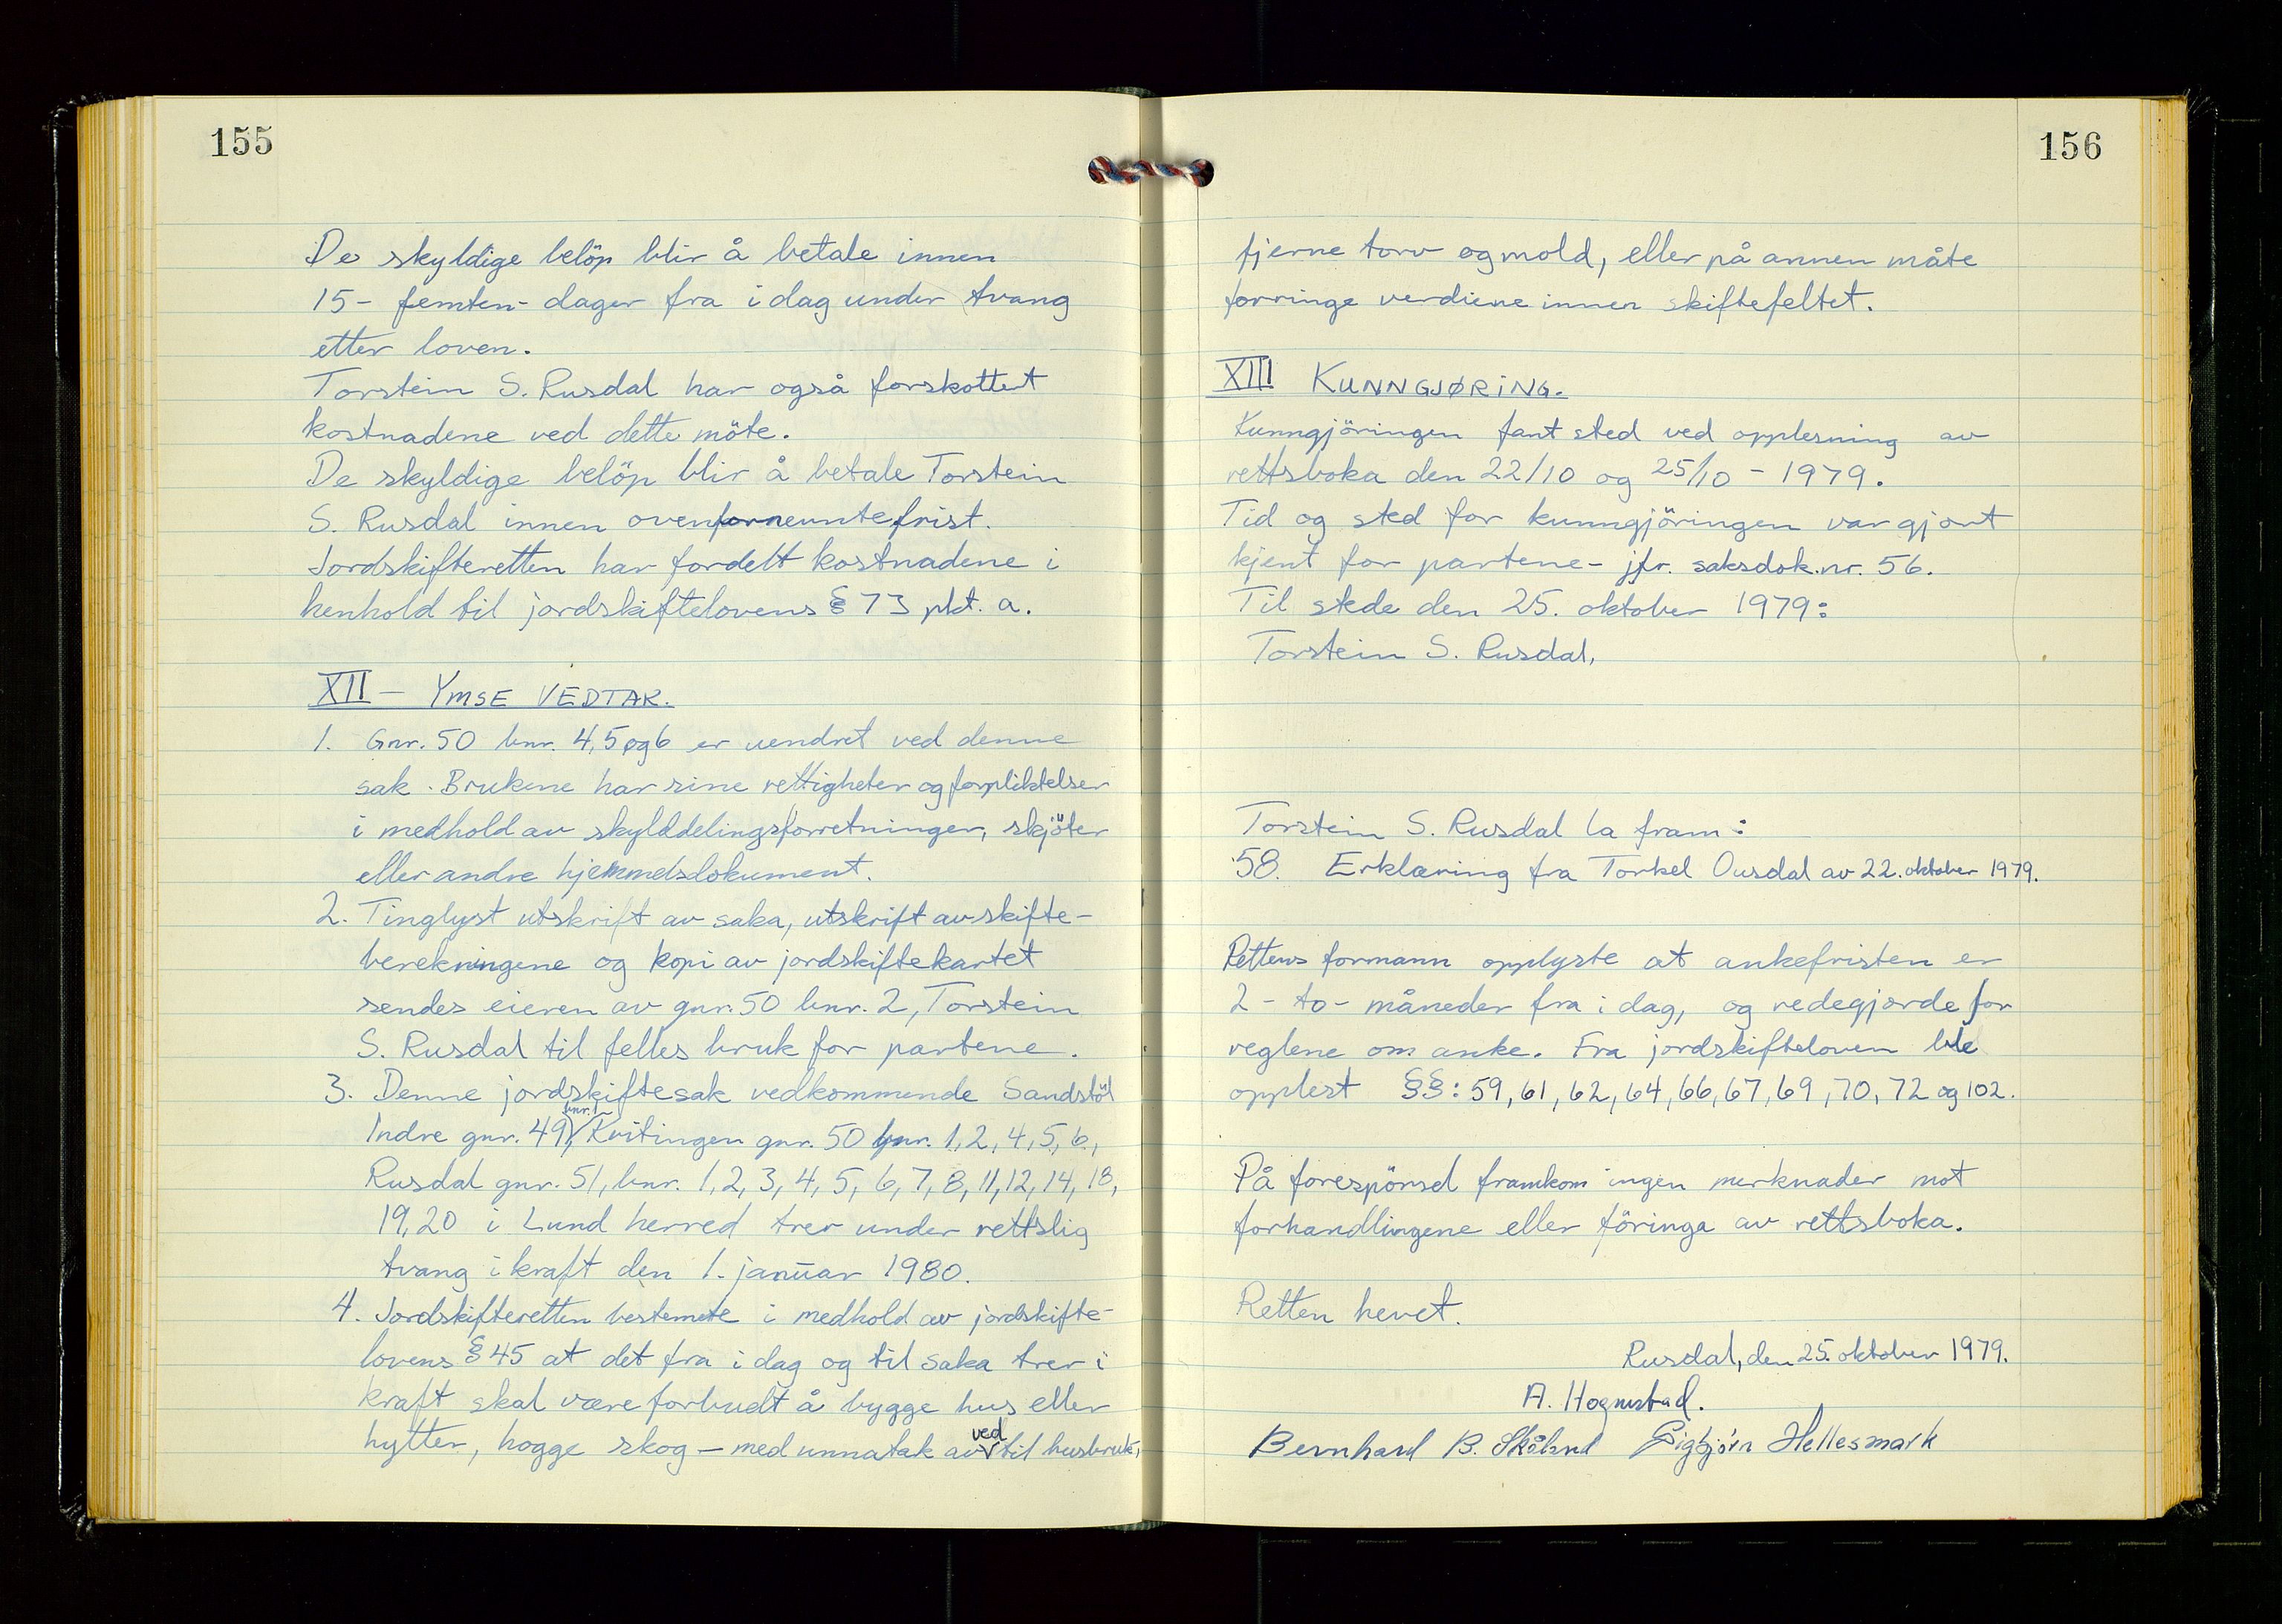 155
De skyldige belöp blir å betale innen
15- femten- dager fra i dag under tvang
etter loven.
Torstein S. Rusdal har også forskottert
kostnadene ved dette möte.
De skyldige belöp blir å betale Torstein
S. Rusdal innen ovenfornevnte frist.
Jordskifteretten har fordelt kostnadene i
henhold til jordskiftelovens § 73 pkt. a.
XII - YMSE VEDTAK.
1. Gnr. 50 bnr. 4, 5 og 6 er uendret ved denne
sak. Brukene har sine rettigheter og forpliktelser
i medhold av skylddelingsforretninger, skjöter
eller andre hjemmelsdokument.
2. Tinglyst utskrift av saka, utskrift av skifte-
berekningene og kopi av jordskiftekartet
sendes eieren av gnr. 50 bnr. 2, Torstein
S. Rusdal til felles bruk for partene.
3. Denne jordskiftesak vedkommende Sandstöl
Indre gnr. 49, bnr. 1, Kvitingen gnr. 50 bnr. 1, 2, 4, 5, 6,
Rusdal gnr. 51, bnr. 1, 2, 3, 4, 5, 6, 7, 8, 11, 12, 14, 18,
19, 20 i Lund herred trer under rettslig
tvang i kraft den 1. januar 1980.
4. Jordskifteretten bestemte i medhold av jordskifte-
lovens § 45 at det fra i dag og til saka trer i
kraft skal være forbudt å bygge hus eller
hytter, hogge skog - med unnatak av ved til husbruk,
156
fjerne torv og mold, eller på annen måte
forringe verdiene innen skiftefeltet.
XIII KUNNGJØRING.
Kunngjöringen fant sted ved opplesning av
rettsboka den 22/10 og 25/10 - 1979.
Tid og sted for kunngjöringen var gjort
kjent for partene - jfr. saksdok. nr. 56.
Til stede den 25. oktober 1979:
Torstein S. Rusdal,
Torstein S. Rusdal la fram:
58. Erklæring fra Torkel Ousdal av 22. oktober 1979.
Rettens formann opplyste at ankefristen er
2 - to - måneder fra i dag, og redegjorde for
reglene om anke. Fra jordskifteloven ble
opplest §§: 59, 61, 62, 64, 66, 67, 69, 70, 72 og 102.
På forespörsel framkom ingen merknader mot
forhandlingene eller föringa av rettsboka.
Retten hevet.
Rusdal, den 25. oktober 1979.
A. Hognestad.
Bernhard B. Skåland Sigbjörn Hellesmark